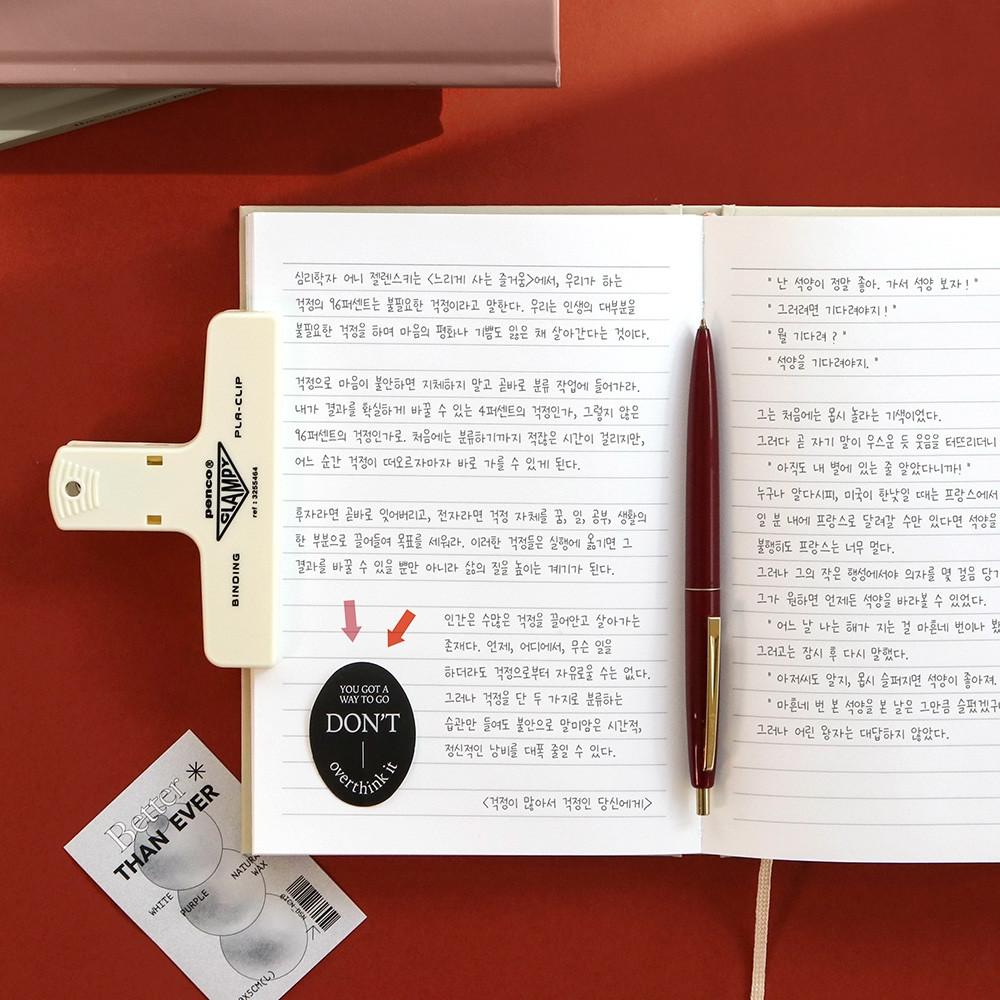 심리학자 어니 젤렌스키는 <느리게 사는 즐거움>에서, 우리가 하는
걱정의 96퍼센트는 불필요한 걱정이라고 말한다. 우리는 인생의 대부분을
불필요한 걱정을 하며 마음의 평화나 기쁨도 잃은 채 살아간다는 것이다.
걱정으로 마음이 불안하면 지체하지 말고 곧바로 분류 작업에 들어가라.
내가 결과를 확실하게 바꿀 수 있는 4퍼센트의 걱정인가, 그렇지 않은
96퍼센트의 걱정인가로. 처음에는 분류하기까지 적잖은 시간이 걸리지만,
어느 순간 걱정이 떠오르자마자 바로 가를 수 있게 된다.
후자라면 곧바로 잊어버리고, 전자라면 걱정 자체를 꿈, 일, 공부, 생활의
한 부분으로 끌어들여 목표를 세워라. 이러한 걱정들은 실행에 옮기면 그
결과를 바꿀 수 있을 뿐만 아니라 삶의 질을 높이는 계기가 된다.
인간은 수많은 걱정을 끌어안고 살아가는
존재다. 언제, 어디에서, 무슨 일을
하더라도 걱정으로부터 자유로울 수는 없다.
그러나 걱정을 단 두 가지로 분류하는
습관만 들여도 불안으로 말미암은 시간적,
정신적인 낭비를 대폭 줄일 수 있다.
<걱정이 많아서 걱정인 당신에게>
YOU GOT A
WAY TO GO
DON'T
overthink it
" 난 석양이 정말 좋아. 가서 석양 보자 ! "
" 그러려면 기다려야지 ! "
" 뭘 기다려 ? "
" 석양을 기다려야지. "
그는 처음에는 몹시 놀라는 기색이었다.
그러다 곧 자기 말이 우스운 듯 웃음을 터뜨리더니
" 아직도 내 별에 있는 줄 알았다니까! "
누구나 알다시피, 미국이 한낮일 때는 프랑스에서
일 분 내에 프랑스로 달려갈 수만 있다면 석양을
불행히도 프랑스는 너무 멀다.
그러나 그의 작은 행성에서야 의자를 몇 걸음 당기
그가 원하면 언제든 석양을 바라볼 수 있었다.
" 어느 날 나는 해가 지는 걸 마흔네 번이나 봤
그러고는 잠시 후 다시 말했다.
" 아저씨도 알지, 몹시 슬퍼지면 석양이 좋아져.
" 마흔네 번 본 석양을 본 날은 그만큼 슬펐겠구
그러나 어린 왕자는 대답하지 않았다.
PLA-CLIP
penco®
CLAMPY
ref : 3255464
BINDING
Better
THAN EVER
WHITE
PURPLE
WAX